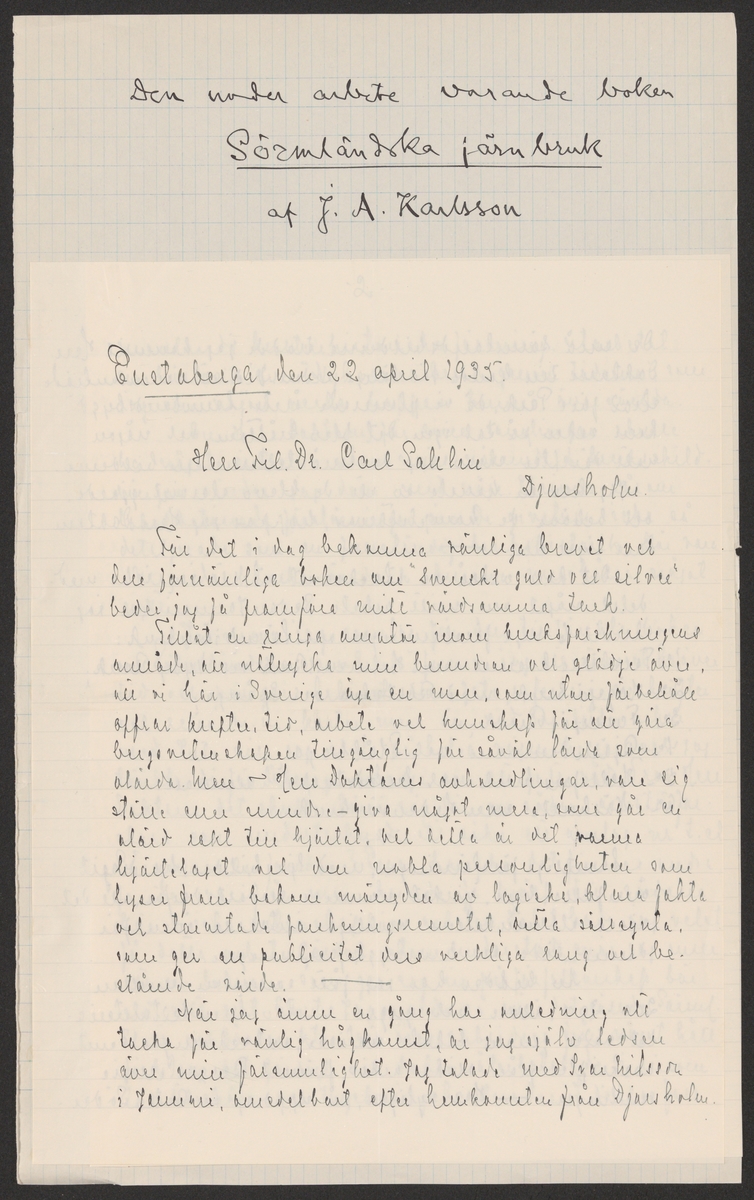 Den under arbete varande boken
Sörmländska järnbruk
af J. A. Karlsson
Gustaberga den 22 april 1935.
Herr Fil. Dr. Carl Sahlin
Djursholm.
För det i dag bekomna vänliga brevet och
den förnämliga boken om "Svenskt guld och silver"
beder jag få framföra mitt vördsamma tack.
Tillåt en ringa amatör inom bruksforskningens
område, att uttrycka min beundran och glädje över,
att vi här i Sverige äga en man, som utan förbehåll
offrar krafter, tid, arbete och kunskap för att göra
bergsvetenskapen tillgänglig för såväl lärda som
olärda. Men ~ Herr Doktorns avhandlingar, vare sig
större eller mindre - giva något mera, som går en
olärd rakt till hjärtat, och detta är det varma
hjärtelaget och den nobla personligheten som
lyser fram bakom mängden av logiska, klara fakta
och storartade forskningsresultat, detta sällsynta,
som ger en publicitet dess verkliga rang och be-
stående värde.
När jag ännu en gång har anledning att
tacka för vänlig hågkomst, är jag själv ledsen
över min försumlighet. Jag talade med Ivar Nilsson
i Januari, omedelbart efter hemkomsten från Djursholm.